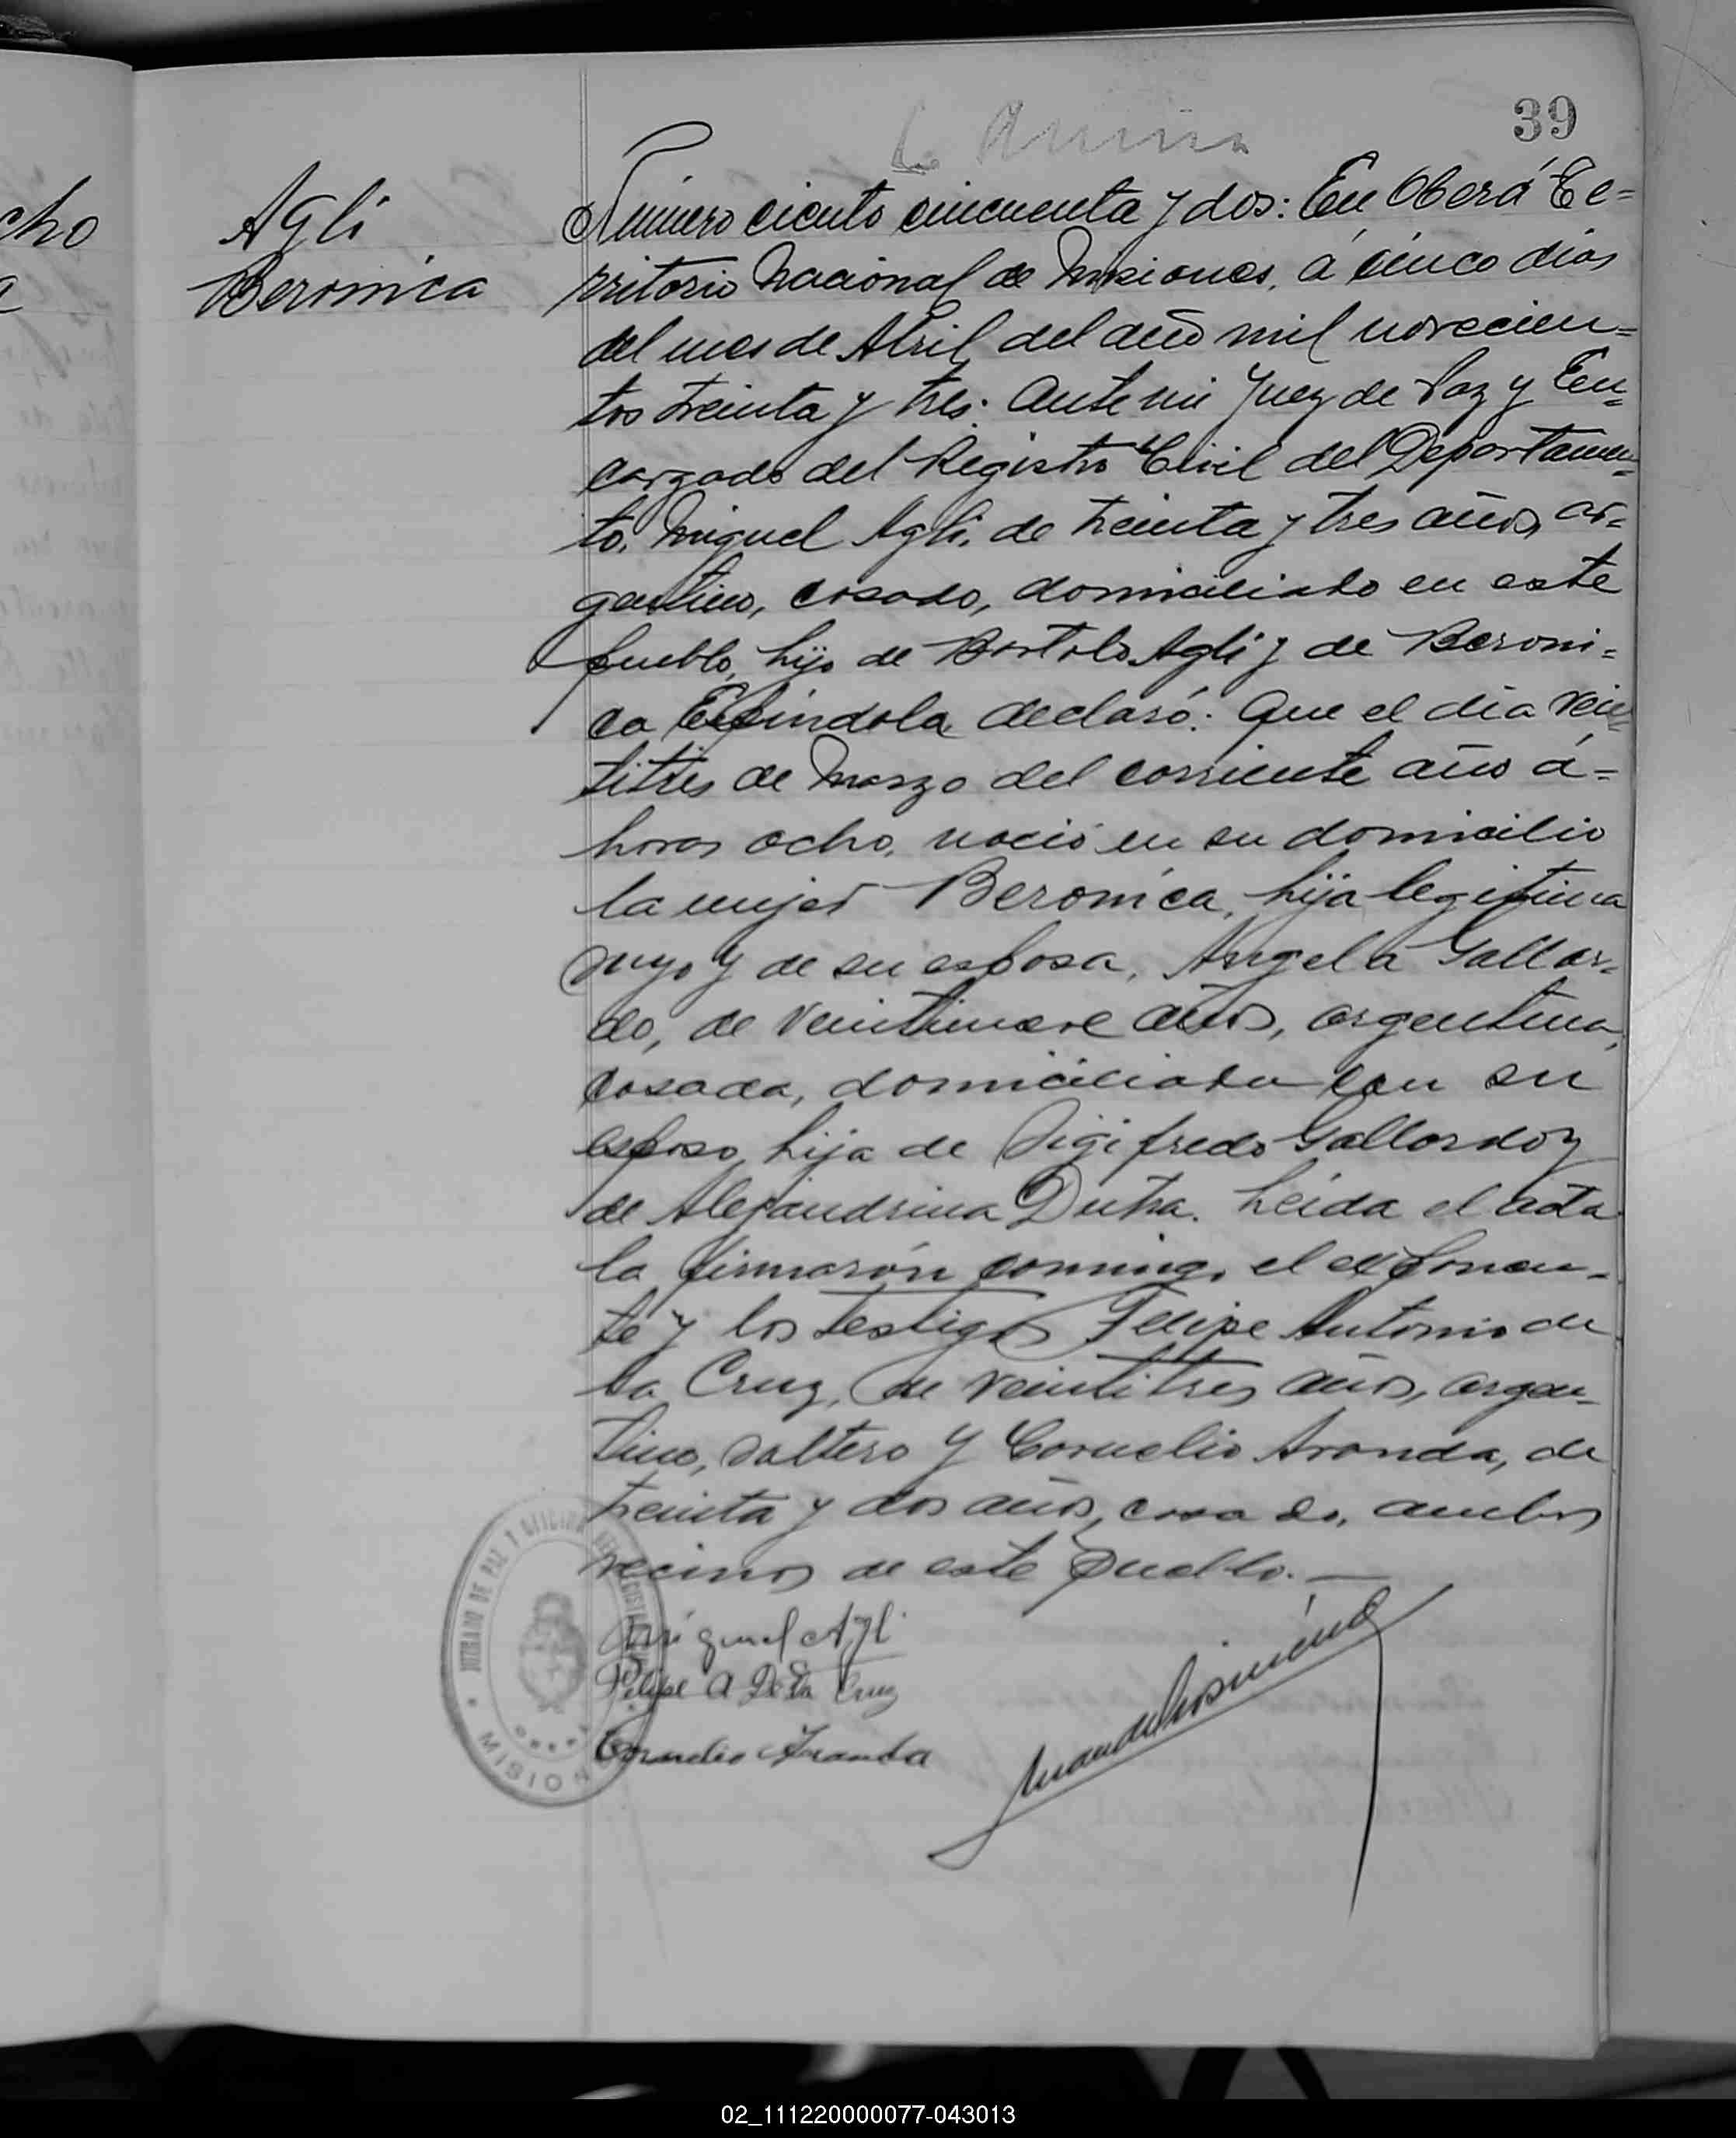 39
Agli
Beronica
Número ciento cincuenta y dos: En Oberá Te=
rritorio Nacional de Misiones, á cinco dias
del mes de Abril del año mil novecien=
tos treinta y tres: Ante mi Juez de Paz y En=
cargado del Registro Civil del Departamen=
to, Miguel Agli, de treinta y tres años, ar=
gentino, casado, domiciliado en este
pueblo, hijo de Bartolo Agli y de Beroni=
ca Espíndola, declaró: Que el día vein=
titres de Marzo del corriente año á=
horas ocho, nació en su domicilio
la mujer Beronica, hija legitima
suya y de su esposa, Angela Gallar=
do, de veintinueve años, argentina,
casada, domiciliada con su
esposo, hija de Sigifredo Gallardo y
de Alejandrina Dutra. Leida el acta
la firmarón conmigo, el exponen=
te y los testigos Felipe Antonio de
la Cruz, de veintitres años, argen=
tino, soltero y Cornelio Aranda, de
treinta y dos años, casado, ambos
vecinos de este pueblo.—
JUZGADO DE PAZ Y OFICINA DEL REGISTRO
MISIONES
Miguel Agli
Felipe A De La Cruz
Cornelio Aranda
02_111220000077-043013